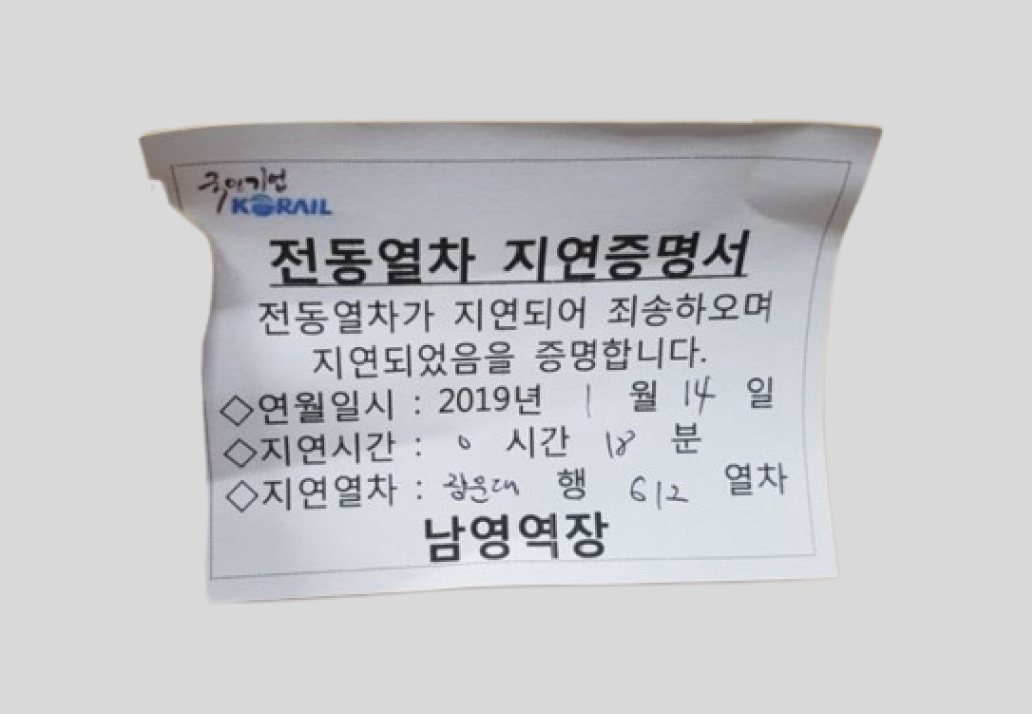 국민기업
KORAIL
전동열차 지연증명서
전동열차가 지연되어 죄송하오며
지연되었음을 증명합니다.
◇연월일시 : 2019년 1 월 14 일
◇지연시간 : 0 시간 18 분
◇지연열차 : 광운대 행 612 열차
남영역장